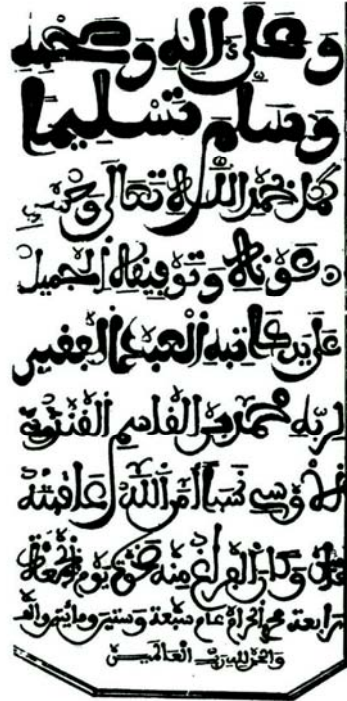 وعلى ءاله وصحبه
وسلم تسليما
كمل بحمد الله تعالى وحسن
عونه وتوفيقه الجميل
على يد كاتبه العبد الفقير
لربه محمد بن القاسم القندوسي
أمر الله عاقبته
وكان الفراغ منه ضحوة يوم الجمعة
محرم الحرام عام سبعة وستين ومائتين وألف
والحمد لله رب العالمين